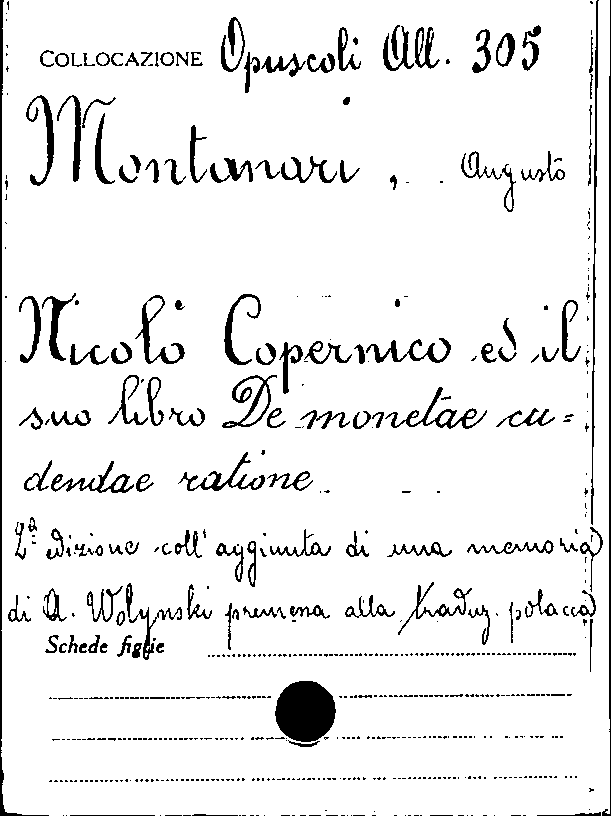 COLLOCAZIONE Opuscoli All. 305
Montanari, Augusto
Nicolò Copernico ed il
suo libro De monetae cu=
dendae ratione.
2ª edizione coll' aggiunta di una memoria
di A. Wolynski premessa alla traduz. polacca
Schede figlie